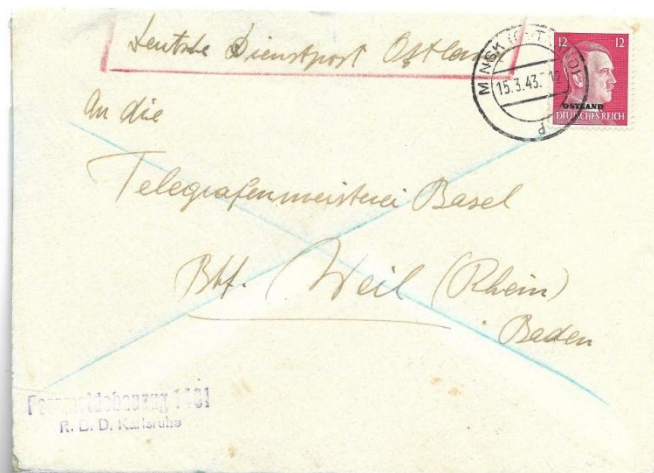 Deutsche Dienstpost Ostland
MINSK
15.3.43. 12
d
12 12
OSTLAND
DEUTSCHES REICH
An die
Telegrafenmeisterei Basel
Bhf. Weil (Rhein)
Baden
Fernmeldebauzug
R. B. D. Karlsruhe